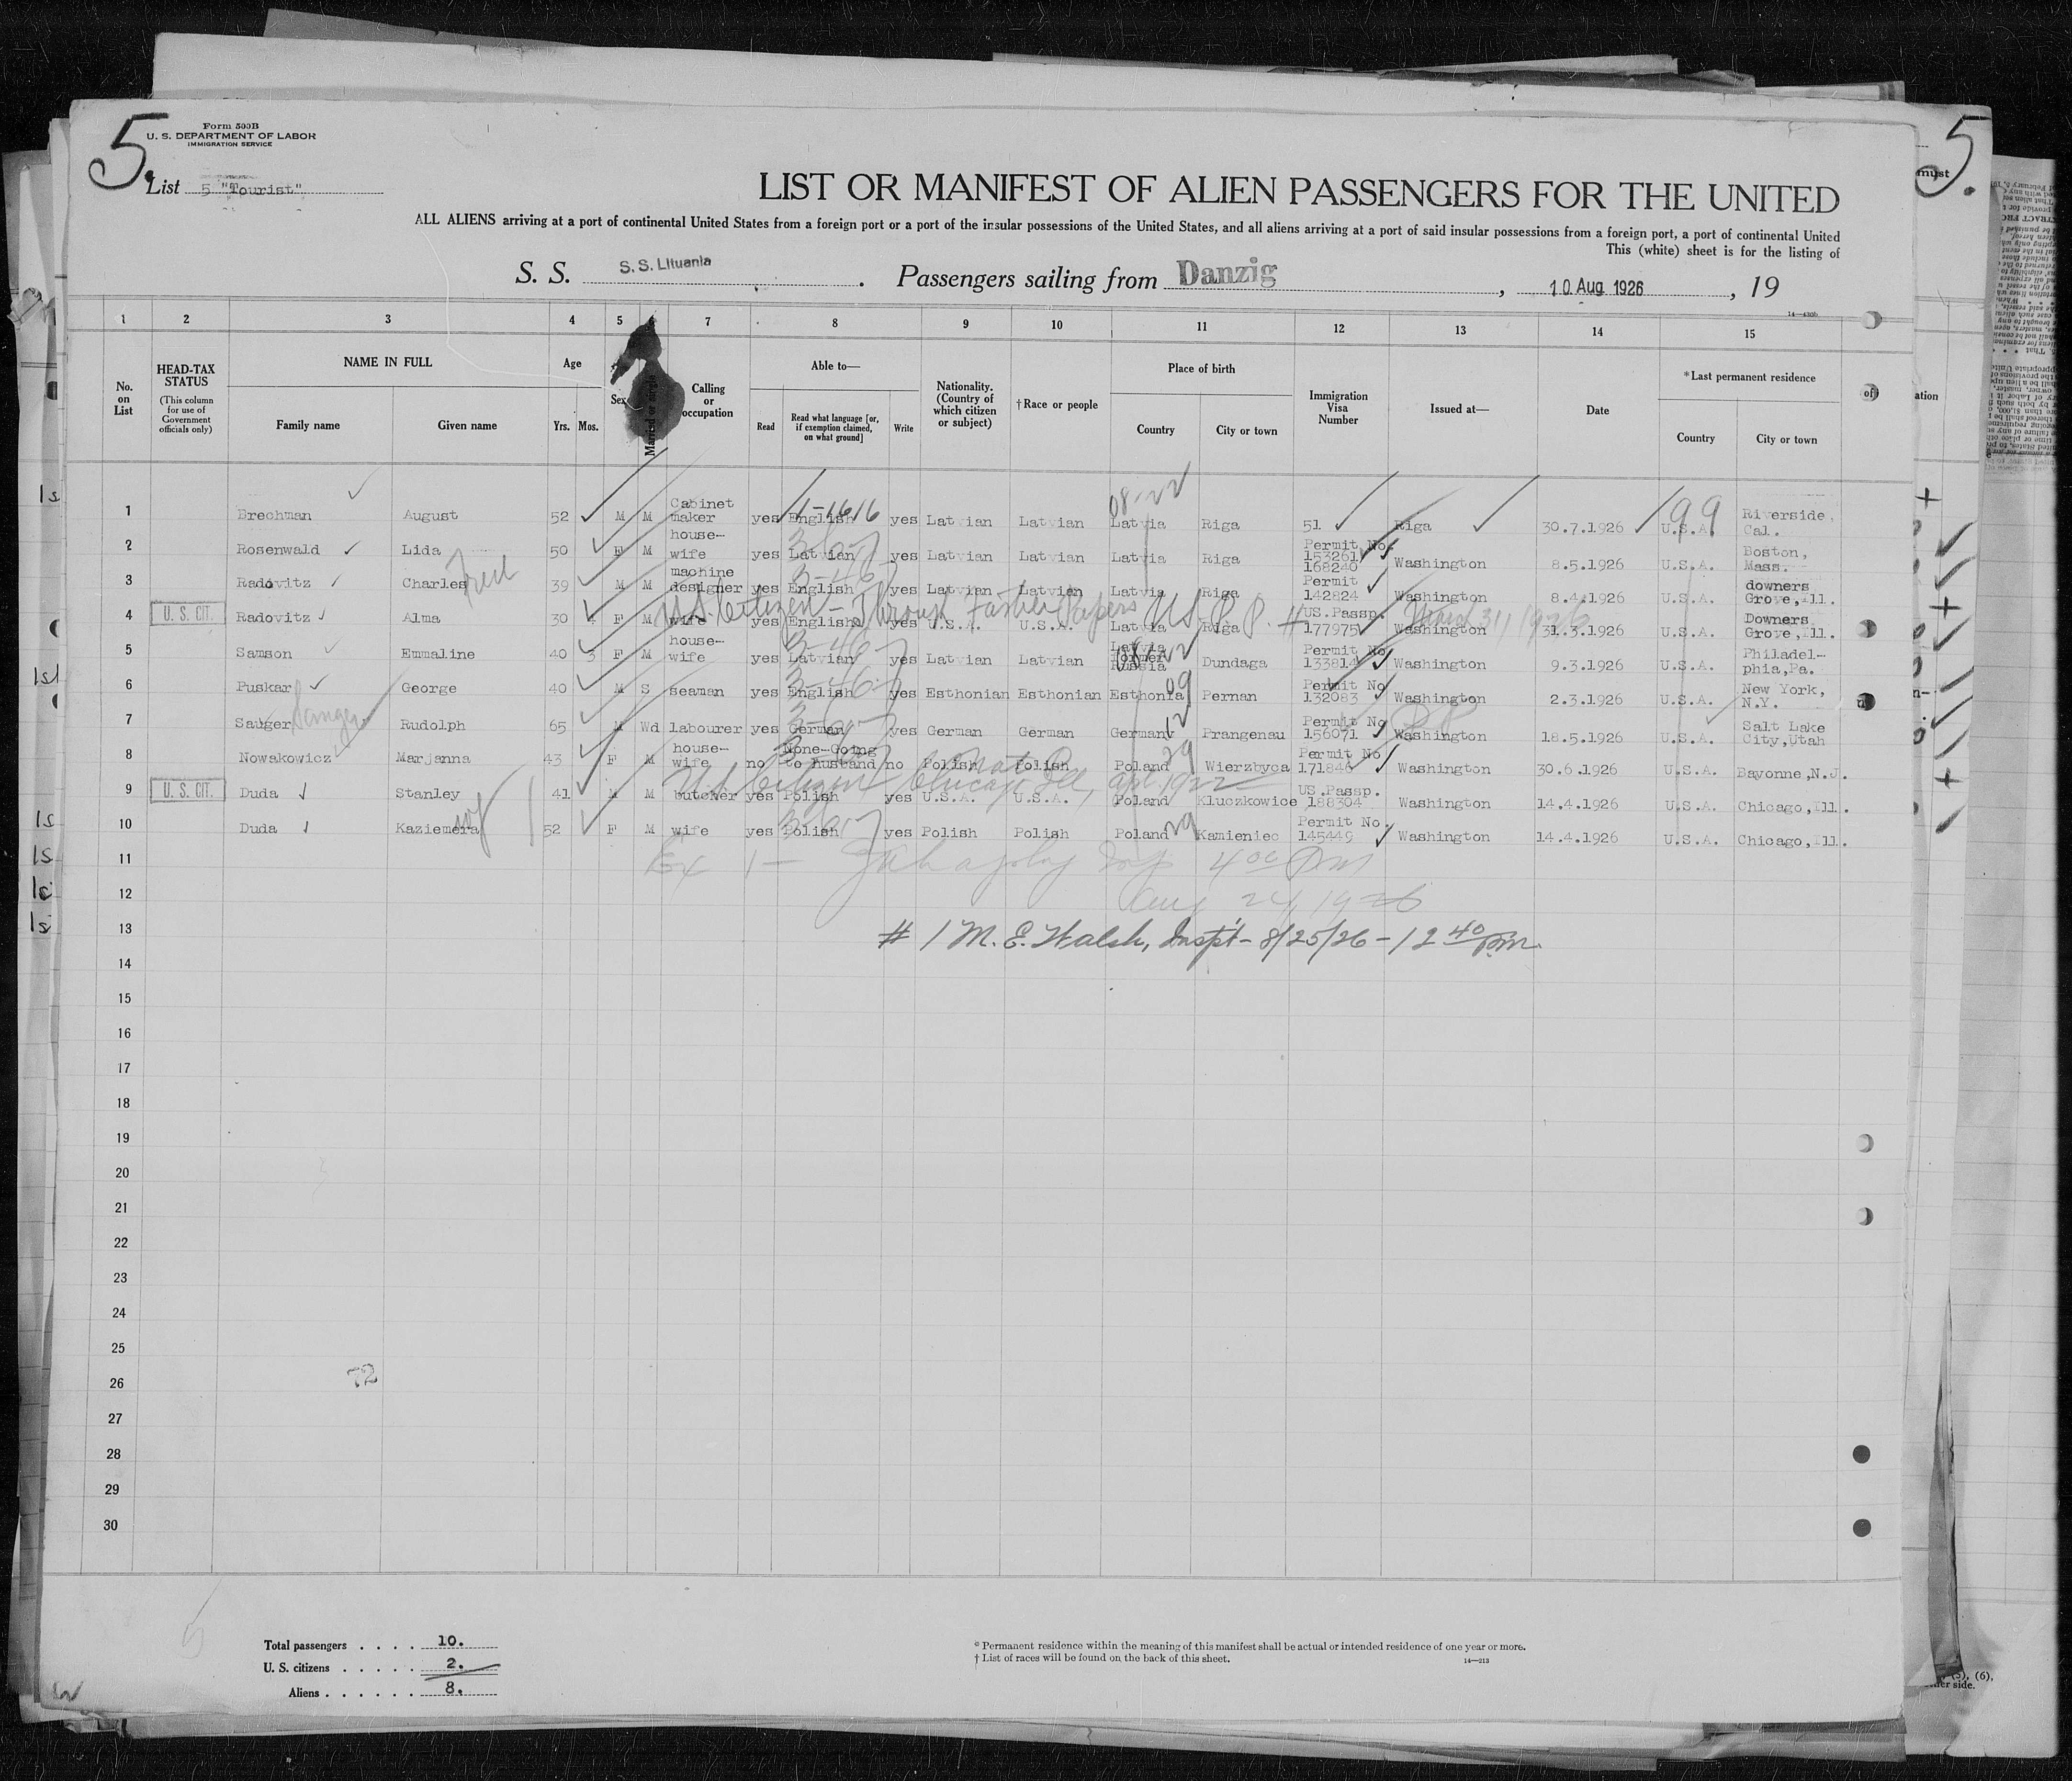 5.
Form 500B
U. S. DEPARTMENT OF LABOR
IMMIGRATION SERVICE
List 5 "Tourist"
LIST OR MANIFEST OF ALIEN PASSENGERS FOR THE UNITED
ALL ALIENS arriving at a port of continental United States from a foreign port or a port of the insular possessions of the United States, and all aliens arriving at a port of said insular possessions from a foreign port, a port of continental United
This (white) sheet is for the listing of
S. S. S. S. Lituania. Passengers sailing from Danzig, 10 Aug 1926, 19
14—430b
1 2 3 4 5 7 8 9 10 11 12 13 14 15
No. on List
HEAD-TAX STATUS (This column for use of Government officials only)
NAME IN FULL
Family name Given name
Age
Yrs. Mos.
Sex
Married or single
Calling or occupation
Able to—
Read Read what language [or, if exemption claimed, on what ground] Write
Nationality. (Country of which citizen or subject)
†Race or people
Place of birth
Country City or town
Immigration Visa Number
Issued at—
Date
*Last permanent residence
Country City or town
1 Brechman August 52 M M Cabinet maker yes English yes Latvian Latvian Latvia Riga 51 Riga 30.7.1926 U.S.A. Riverside, Cal.
2 Rosenwald Lida 50 F M house-wife yes Latvian yes Latvian Latvian Latvia Riga Permit No 153261 168240 Washington 8.5.1926 U.S.A. Boston, Mass.
3 Radovitz Charles 39 M M machine designer yes English yes Latvian Latvian Latvia Riga Permit 142824 Washington 8.4.1926 U.S.A. downers Grove, Ill.
U.S. Citizen - Through Father Papers U.S. P.P. #
4 U. S. CIT. Radovitz Alma 30 F M wife yes English yes U.S.A. U.S.A. Latvia Riga US.Passp. 177975 Washington 31.3.1926 U.S.A. Downers Grove, Ill.
5 Samson Emmaline 40 3 F M house-wife yes Latvian yes Latvian Latvian Latvia former Russia Dundaga Permit No 133814 Washington 9.3.1926 U.S.A. Philadel-phia, Pa.
6 Puskar George 40 M S seaman yes English yes Esthonian Esthonian Esthonia Pernan Permit No 132083 Washington 2.3.1926 U.S.A. New York, N.Y.
7 Sauger Rudolph 65 M Wd labourer yes German yes German German Germany Prangenau Permit No 156071 Washington 18.5.1926 U.S.A. Salt Lake City, Utah
8 Nowakowicz Marjanna 43 F M house-wife no None-Going to husband no Polish Polish Poland Wierzbyca Permit No 171846 Washington 30.6.1926 U.S.A. Bayonne, N.J.
U.S. Citizen Chicago Ill, Apl. 1922
9 U. S. CIT. Duda Stanley 41 M M butcher yes Polish yes U.S.A. U.S.A. Poland Kluczkowice US.Passp. 188304 Washington 14.4.1926 U.S.A. Chicago, Ill.
10 Duda Kaziemera wf 52 F M wife yes Polish yes Polish Polish Poland Kamieniec Permit No. 145449 Washington 14.4.1926 U.S.A. Chicago, Ill.
11
12 Aug 24 1926
13 # 1 M. E. Walsh, Inspt - 8/25/26 - 12 40 pm
14
15
16
17
18
19
20
21
22
23
24
25
26 72
27
28
29
30
Total passengers . . . . 10.
U. S. citizens . . . . . 2.
Aliens . . . . . . 8.
* Permanent residence within the meaning of this manifest shall be actual or intended residence of one year or more.
† List of races will be found on the back of this sheet.
14—213
5.